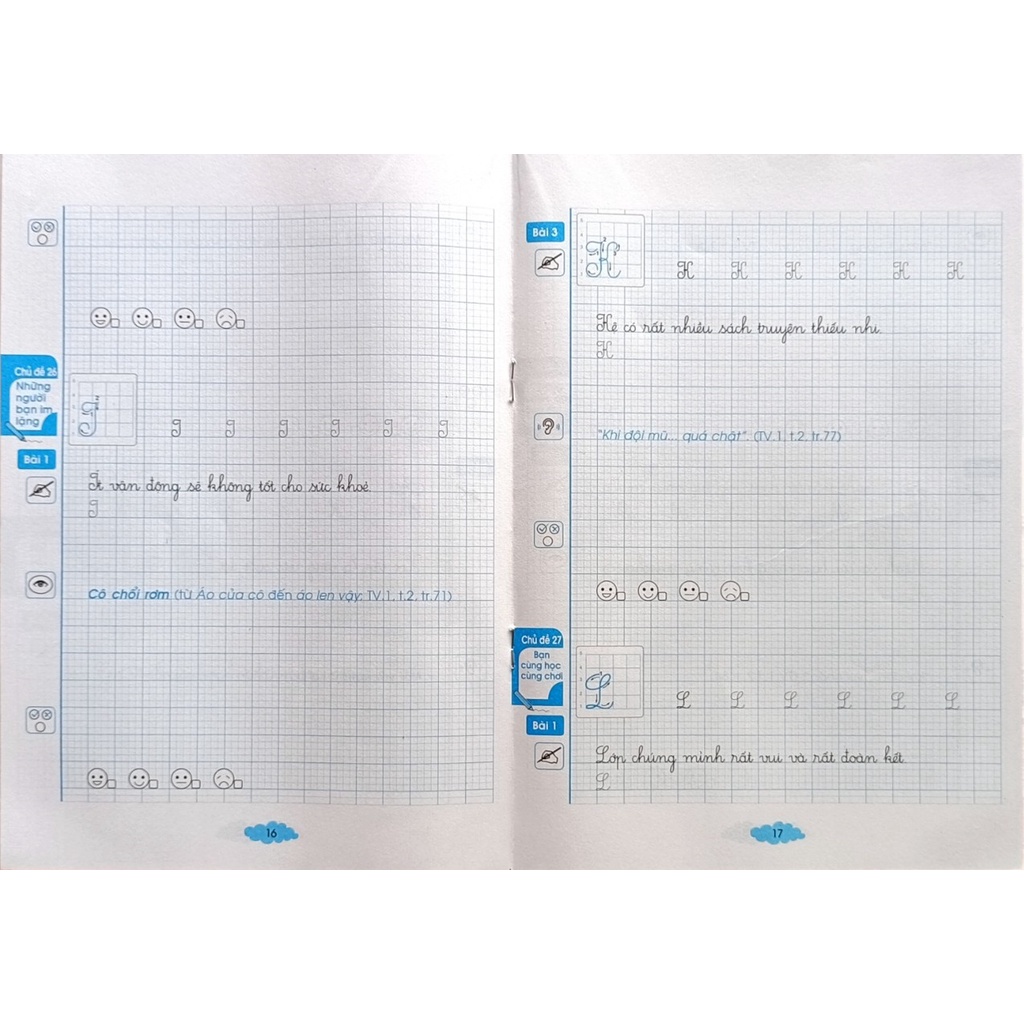 Chủ đề 26
Những
người
bạn im
lặng
I I I I I I
Bài 1
Ít vận động sẽ không tốt cho sức khoẻ.
I
Cô chổi rơm (từ Áo của cô đến áo len vậy; TV.1, t.2, tr.71)
16
Bài 3
H H H H H H
Hè có rất nhiều sách truyện thiếu nhi.
H
"Khi đội mũ... quá chật". (TV.1, t.2, tr.77)
Chủ đề 27
Bạn
cùng học
cùng chơi
L L L L L L
Bài 1
Lớp chúng mình rất vui và rất đoàn kết.
L
17